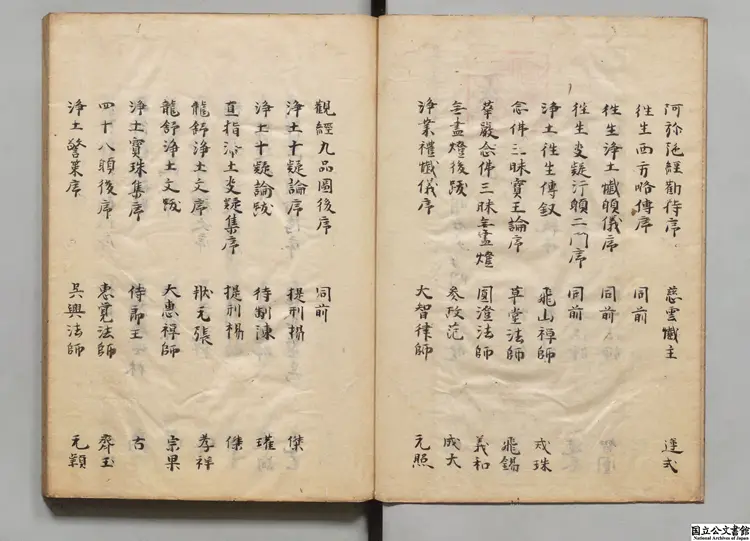 阿弥陀經勸持序 慈雲懺主 遵式
往生西方略傳序 同前
往生淨土懺願儀序 同前
往生決疑行願二門序 同前
淨土往生傳叙 飛山禪師 戒珠
念佛三昧寶王論序 草堂法師 飛錫
華嚴念佛三昧無盡燈序 圓澄法師 義和
無盡燈後跋 參政范 成大
淨業禮懺儀序 大智律師 元照
觀經九品圖後序 同前
淨土十疑論序 提刑楊 傑
淨土十疑論跋 待制陳 瓘
直指淨土決疑集序 提刑楊 傑
龍舒淨土文序 狀元張 孝祥
龍舒淨土文跋 大惠禪師 宗杲
淨土寶珠集序 侍郎王 古
四十八願後序 惠覺法師 齊玉
淨土警策序 吳興法師 元穎
国立公文書館
National Archives of Japan